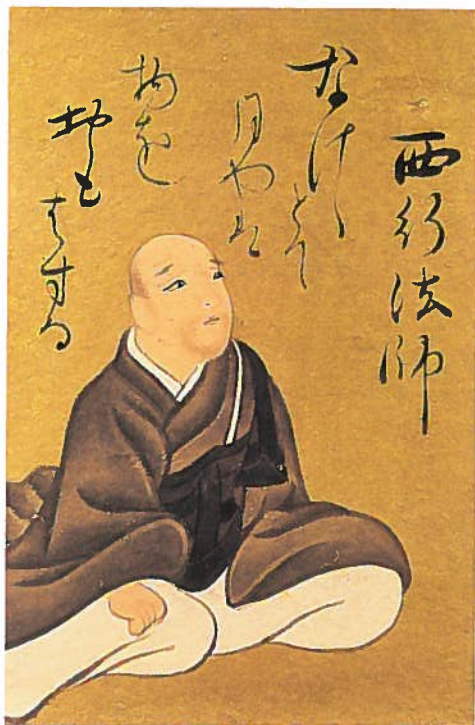 西行法師
なけゝとて
月やは
物を
おも
はする